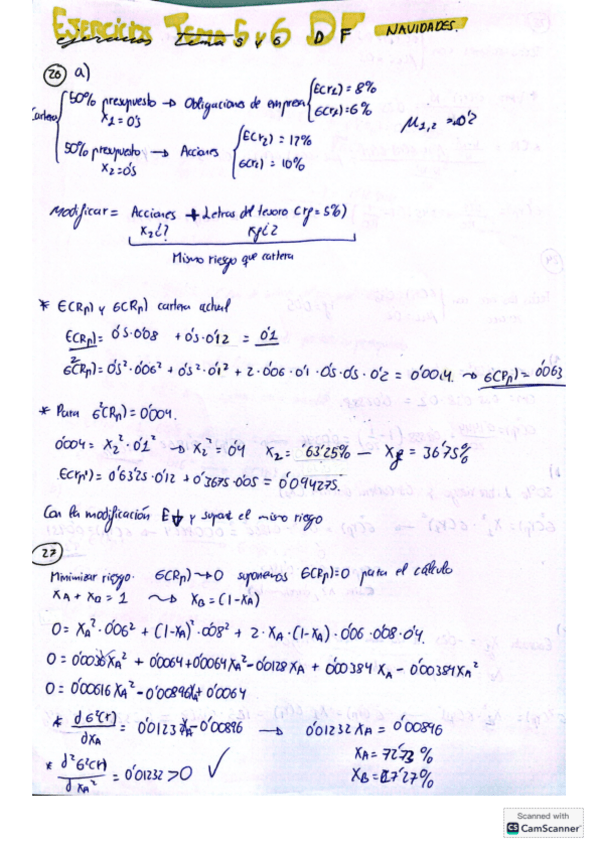 Ejercicios Tema 5 y 6 DF NAVIDADES.
ejercicios Tema 5 y 6
26 a)
Cartera
50% presupuesto → Obligaciones de empresa
E(r2) = 8%
σ(r2) = 6%
X1 = 0'5
μ1,2 = 0'2
50% presupuesto → Acciones
E(r2) = 12%
σ(r2) = 10%
X2 = 0'5
Modificar = Acciones + Letras del tesoro (rf = 5%)
X2 ¿? Xf ¿?
Mismo riesgo que cartera
* E(Rp) y σ(Rp) cartera actual
E(Rp) = 0'5·0'08 + 0'5·0'12 = 0'1
σ²(Rp) = 0'5²·0'06² + 0'5²·0'1² + 2·0'06·0'1·0'5·0'5·0'2 = 0'004. → σ(Rp) = 0'063
* Para σ²(Rp) = 0'004.
0'004 = X2²·0'1² → X2² = 0'4 X2 = 63'25% — Xf = 36'75%
E(rp') = 0'6325·0'12 + 0'3675·0'05 = 0'094275.
Con la modificación E↓ y supone el mismo riesgo
27
Minimizar riesgo. σ(Rp) → 0 suponemos σ(Rp) = 0 para el cálculo
XA + XB = 1 → XB = (1-XA)
0 = XA²·0'06² + (1-XA)²·0'08² + 2·XA·(1-XA)·0'06·0'08·0'4.
0 = 0'0036XA² + 0'0064 + 0'0064XA² - 0'0128XA + 0'00384XA - 0'00384XA²
0 = 0'00616XA² - 0'00896XA + 0'0064
* dσ²(r)/dXA = 0'01232XA - 0'00896 → 0'01232XA = 0'00896
XA = 72'73%
* d²σ²(r)/dXA² = 0'01232 > 0 ✓
XB = 27'27%
Scanned with
CS CamScanner